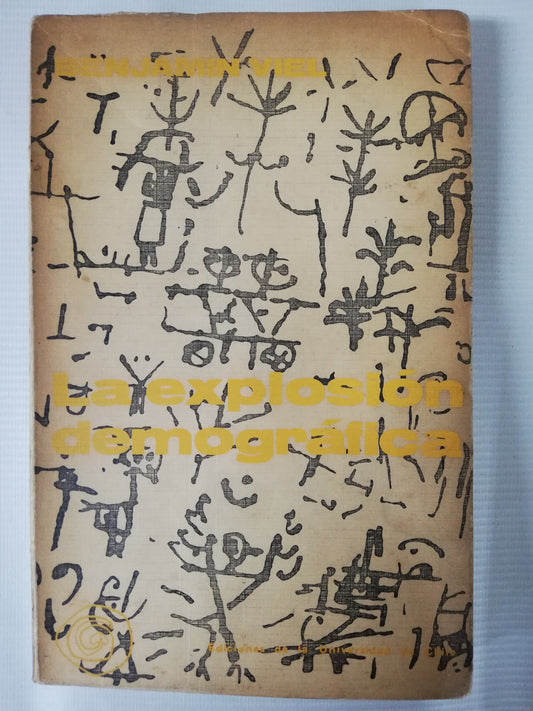 BENJAMIN VIEL
La explosión
demográfica
Ediciones de la Universidad de Chile